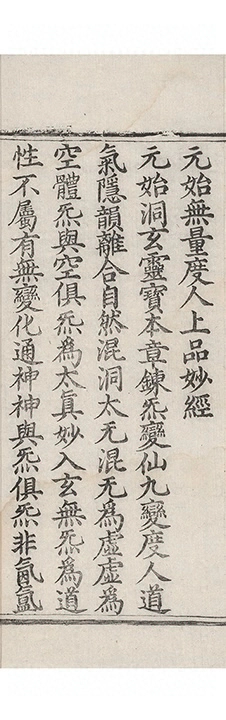 元始無量度人上品妙經
元始洞玄靈寶本章錬炁變仙九變度人道
氣隱韻離合自然混洞太无混无為虛虛為
空體炁與空俱炁為太真妙入玄無炁為道
性不屬有無變化通神神與炁俱炁非氤氳